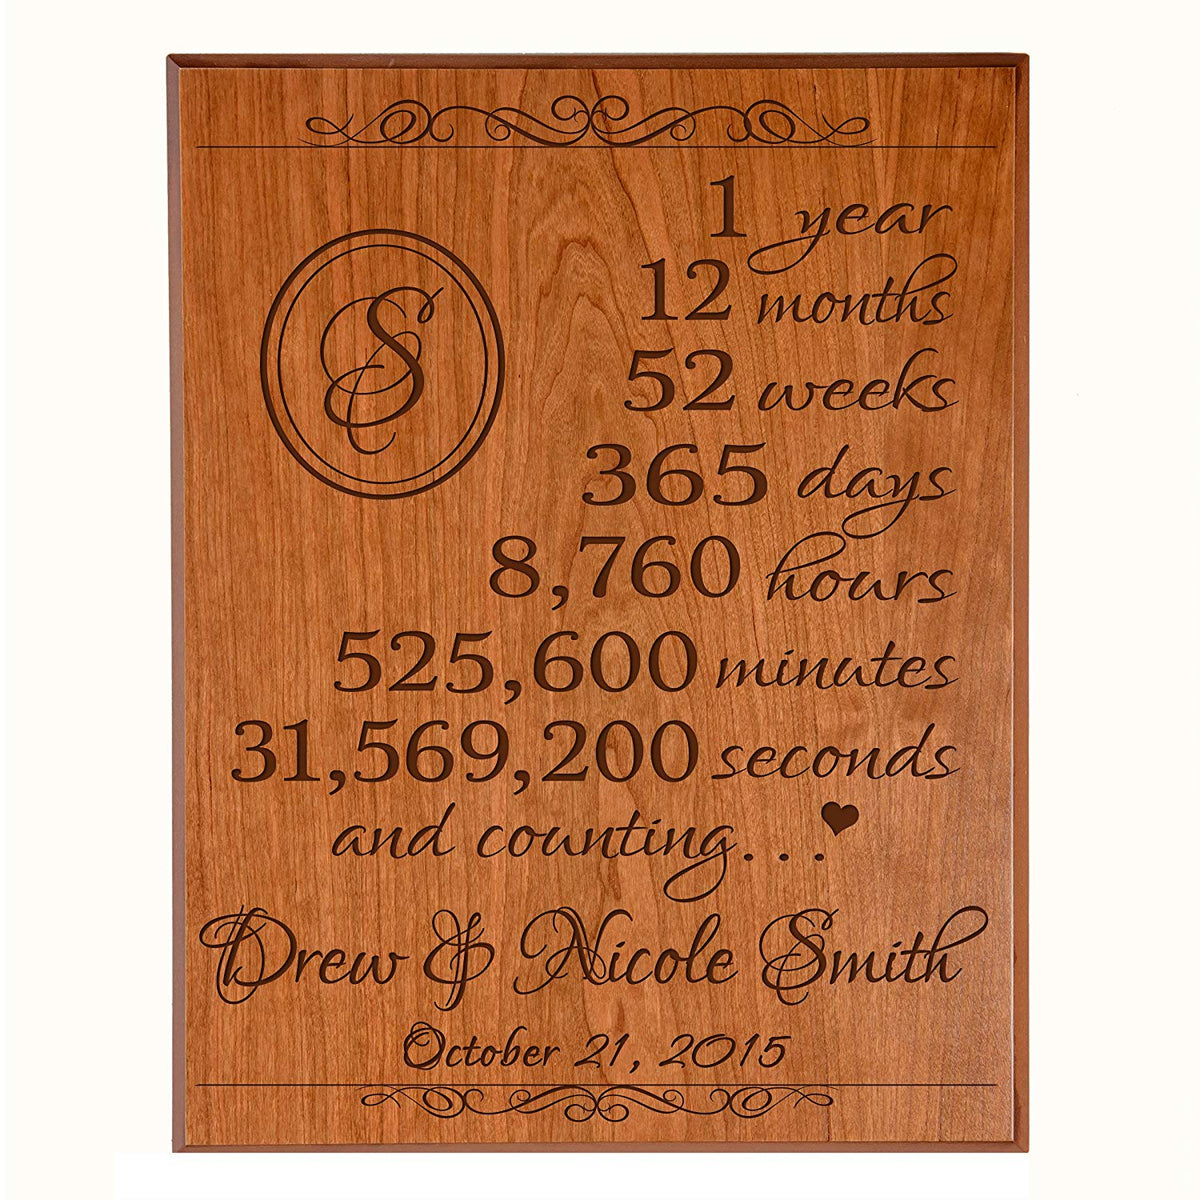 1 year
12 months
S
52 weeks
365 days
8,760 hours
525,600 minutes
31,569,200 seconds
and counting...
Drew & Nicole Smith
October 21, 2015